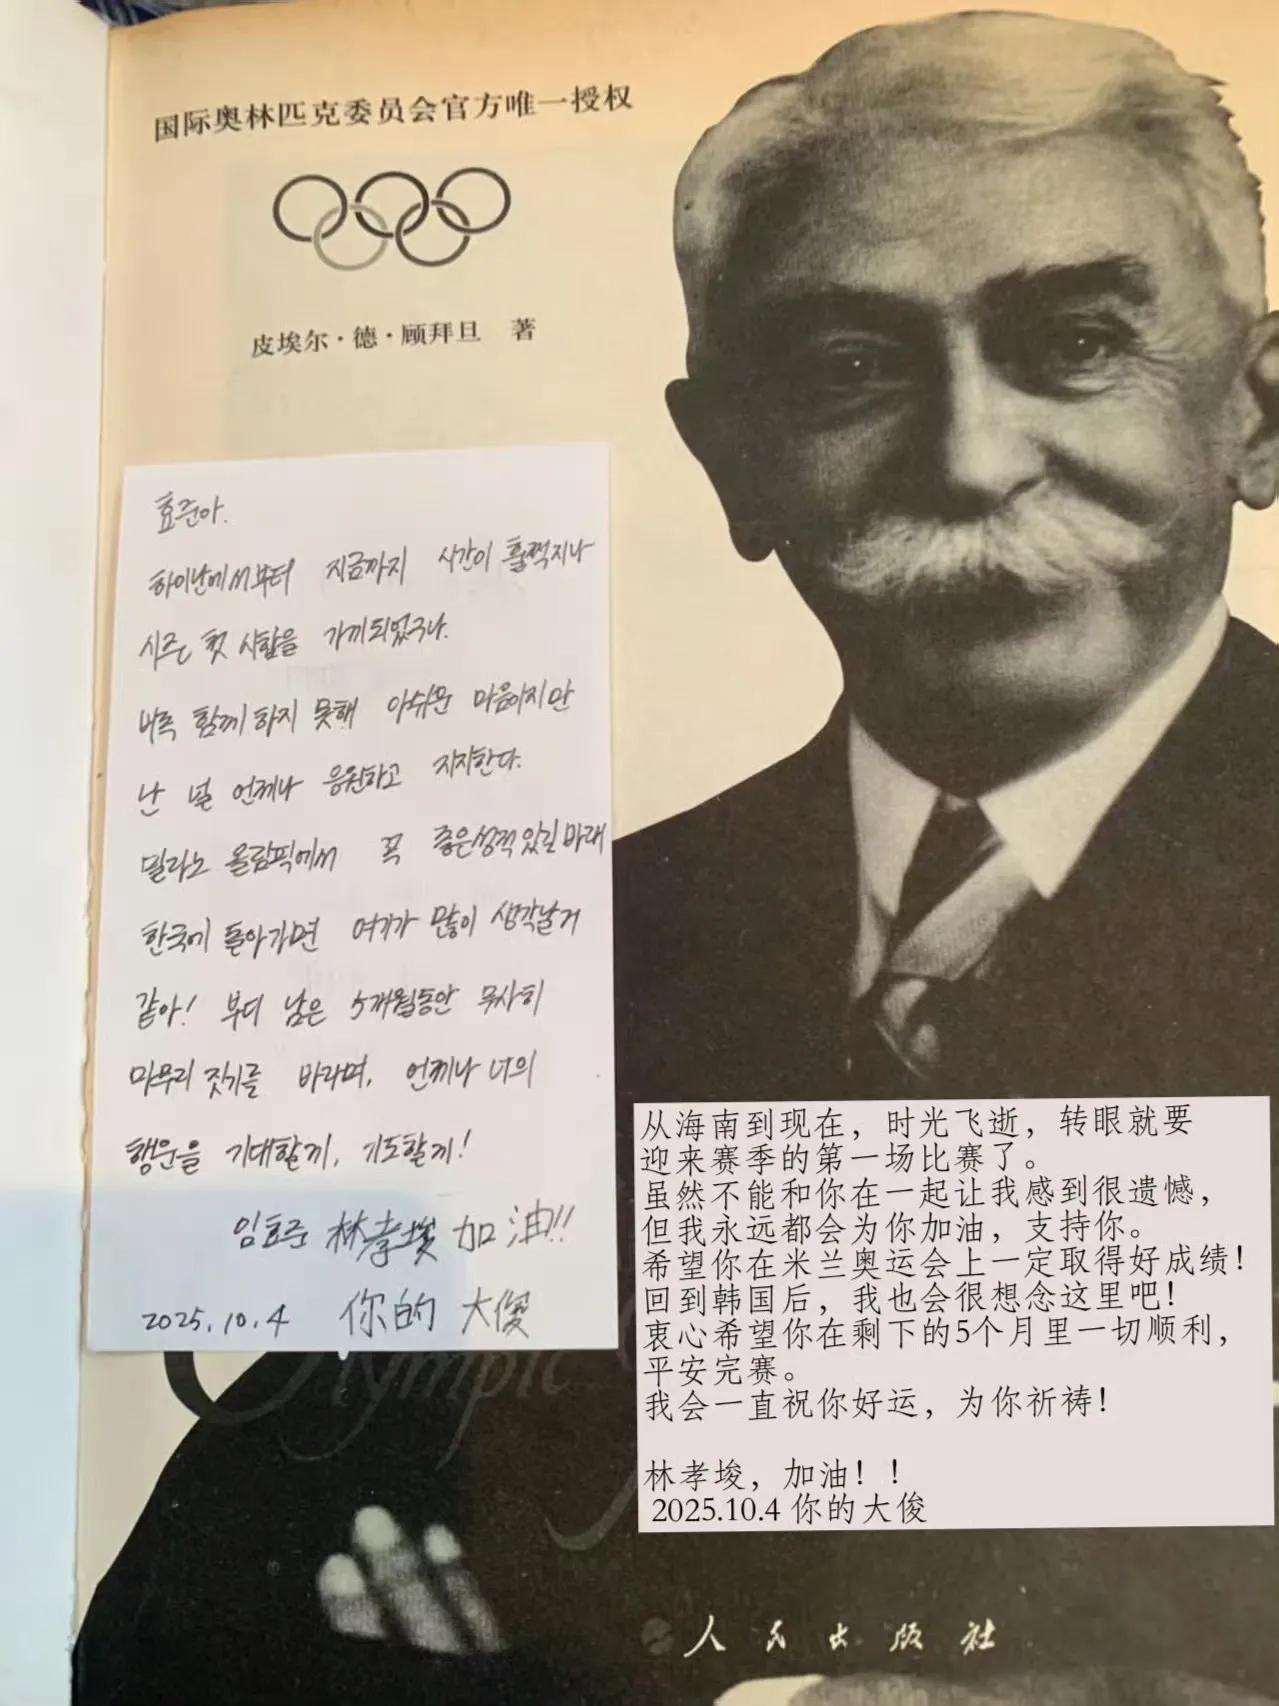 国际奥林匹克委员会官方唯一授权
皮埃尔·德·顾拜旦 著
효준아.
하이난에서부터 지금까지 시간이 훌쩍지나
시즌 첫 시합을 가끼되었구나.
너를 함께 하지 못해 아쉬운 마음이지만
난 널 언제나 응원하고 지지한다.
밀라노 올림픽에서 꼭 좋은성적있길바래
한국에 돌아가면 여기가 많이 생각날거
같아! 부디 남은 5개월동안 무사히
마무리 짓기를 바라며, 언제나 너의
행운을 기대할게, 기도할게!
임효준 林孝埈 加油!!
2025.10.4 你的 大俊
Olympic
从海南到现在，时光飞逝，转眼就要
迎来赛季的第一场比赛了。
虽然不能和你在一起让我感到很遗憾，
但我永远都会为你加油，支持你。
希望你在米兰奥运会上一定取得好成绩！
回到韩国后，我也会很想念这里吧！
衷心希望你在剩下的5个月里一切顺利，
平安完赛。
我会一直祝你好运，为你祈祷！
林孝埈，加油！！
2025.10.4 你的大俊
人民出版社